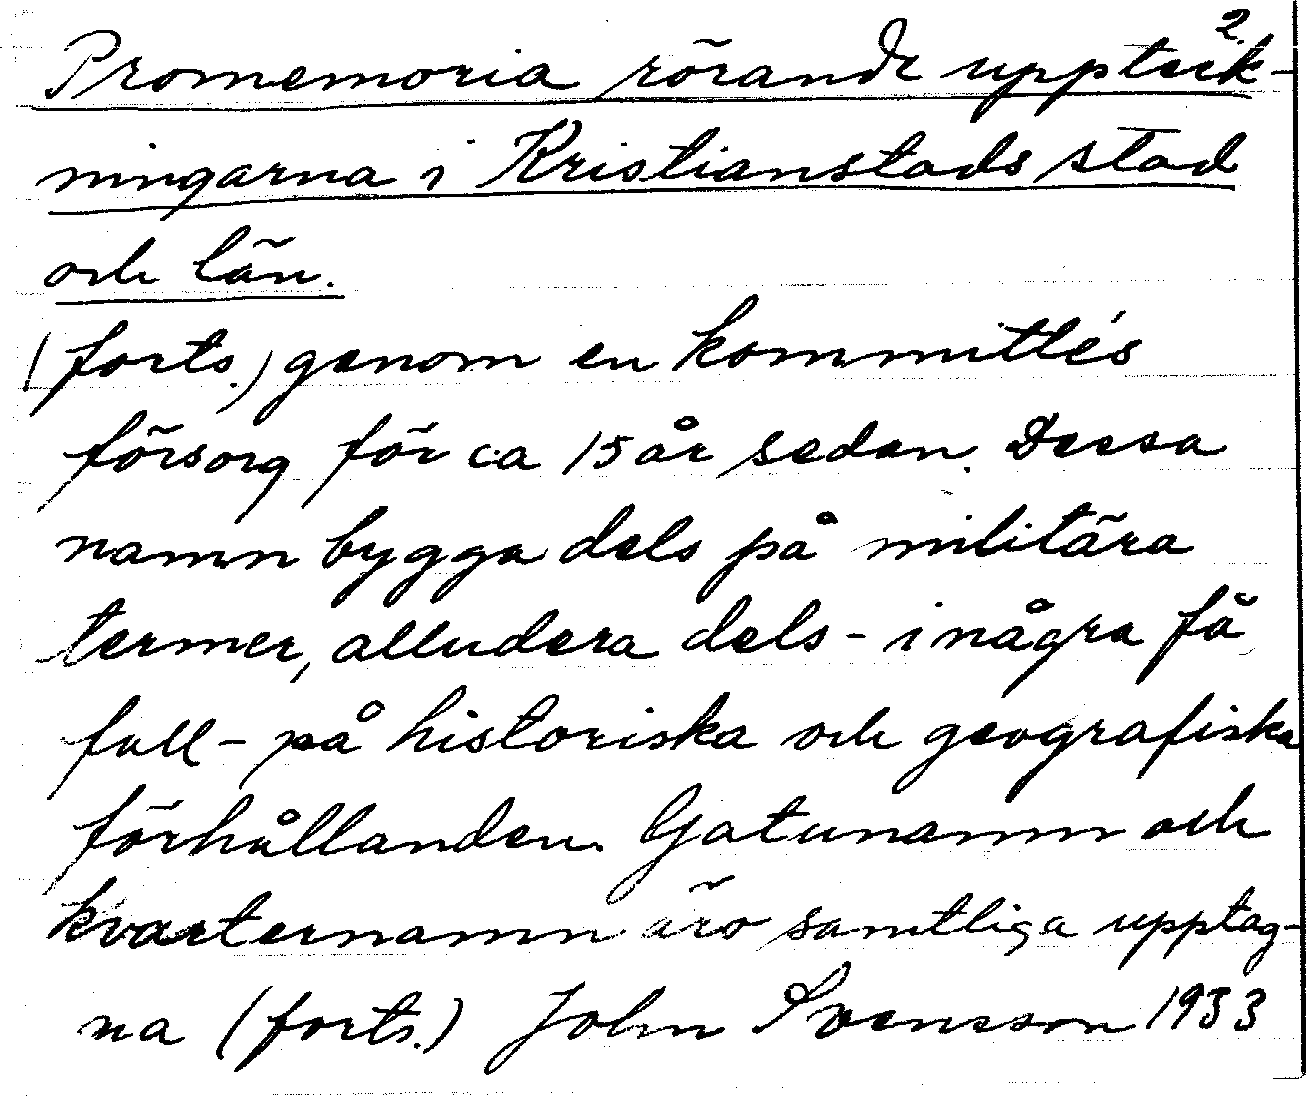 2.
Promemoria rörande uppteck-
ningarna i Kristianstads stad
och län.
(forts.) genom en kommittés
försorg för ca 15 år sedan. Dessa
namn bygga dels på militära
termer, alludera dels - i några få
fall - på historiska och geografiska
förhållanden. Gatunamn och
kvarternamn äro samtliga upptag-
na (forts.) John Svensson 1933